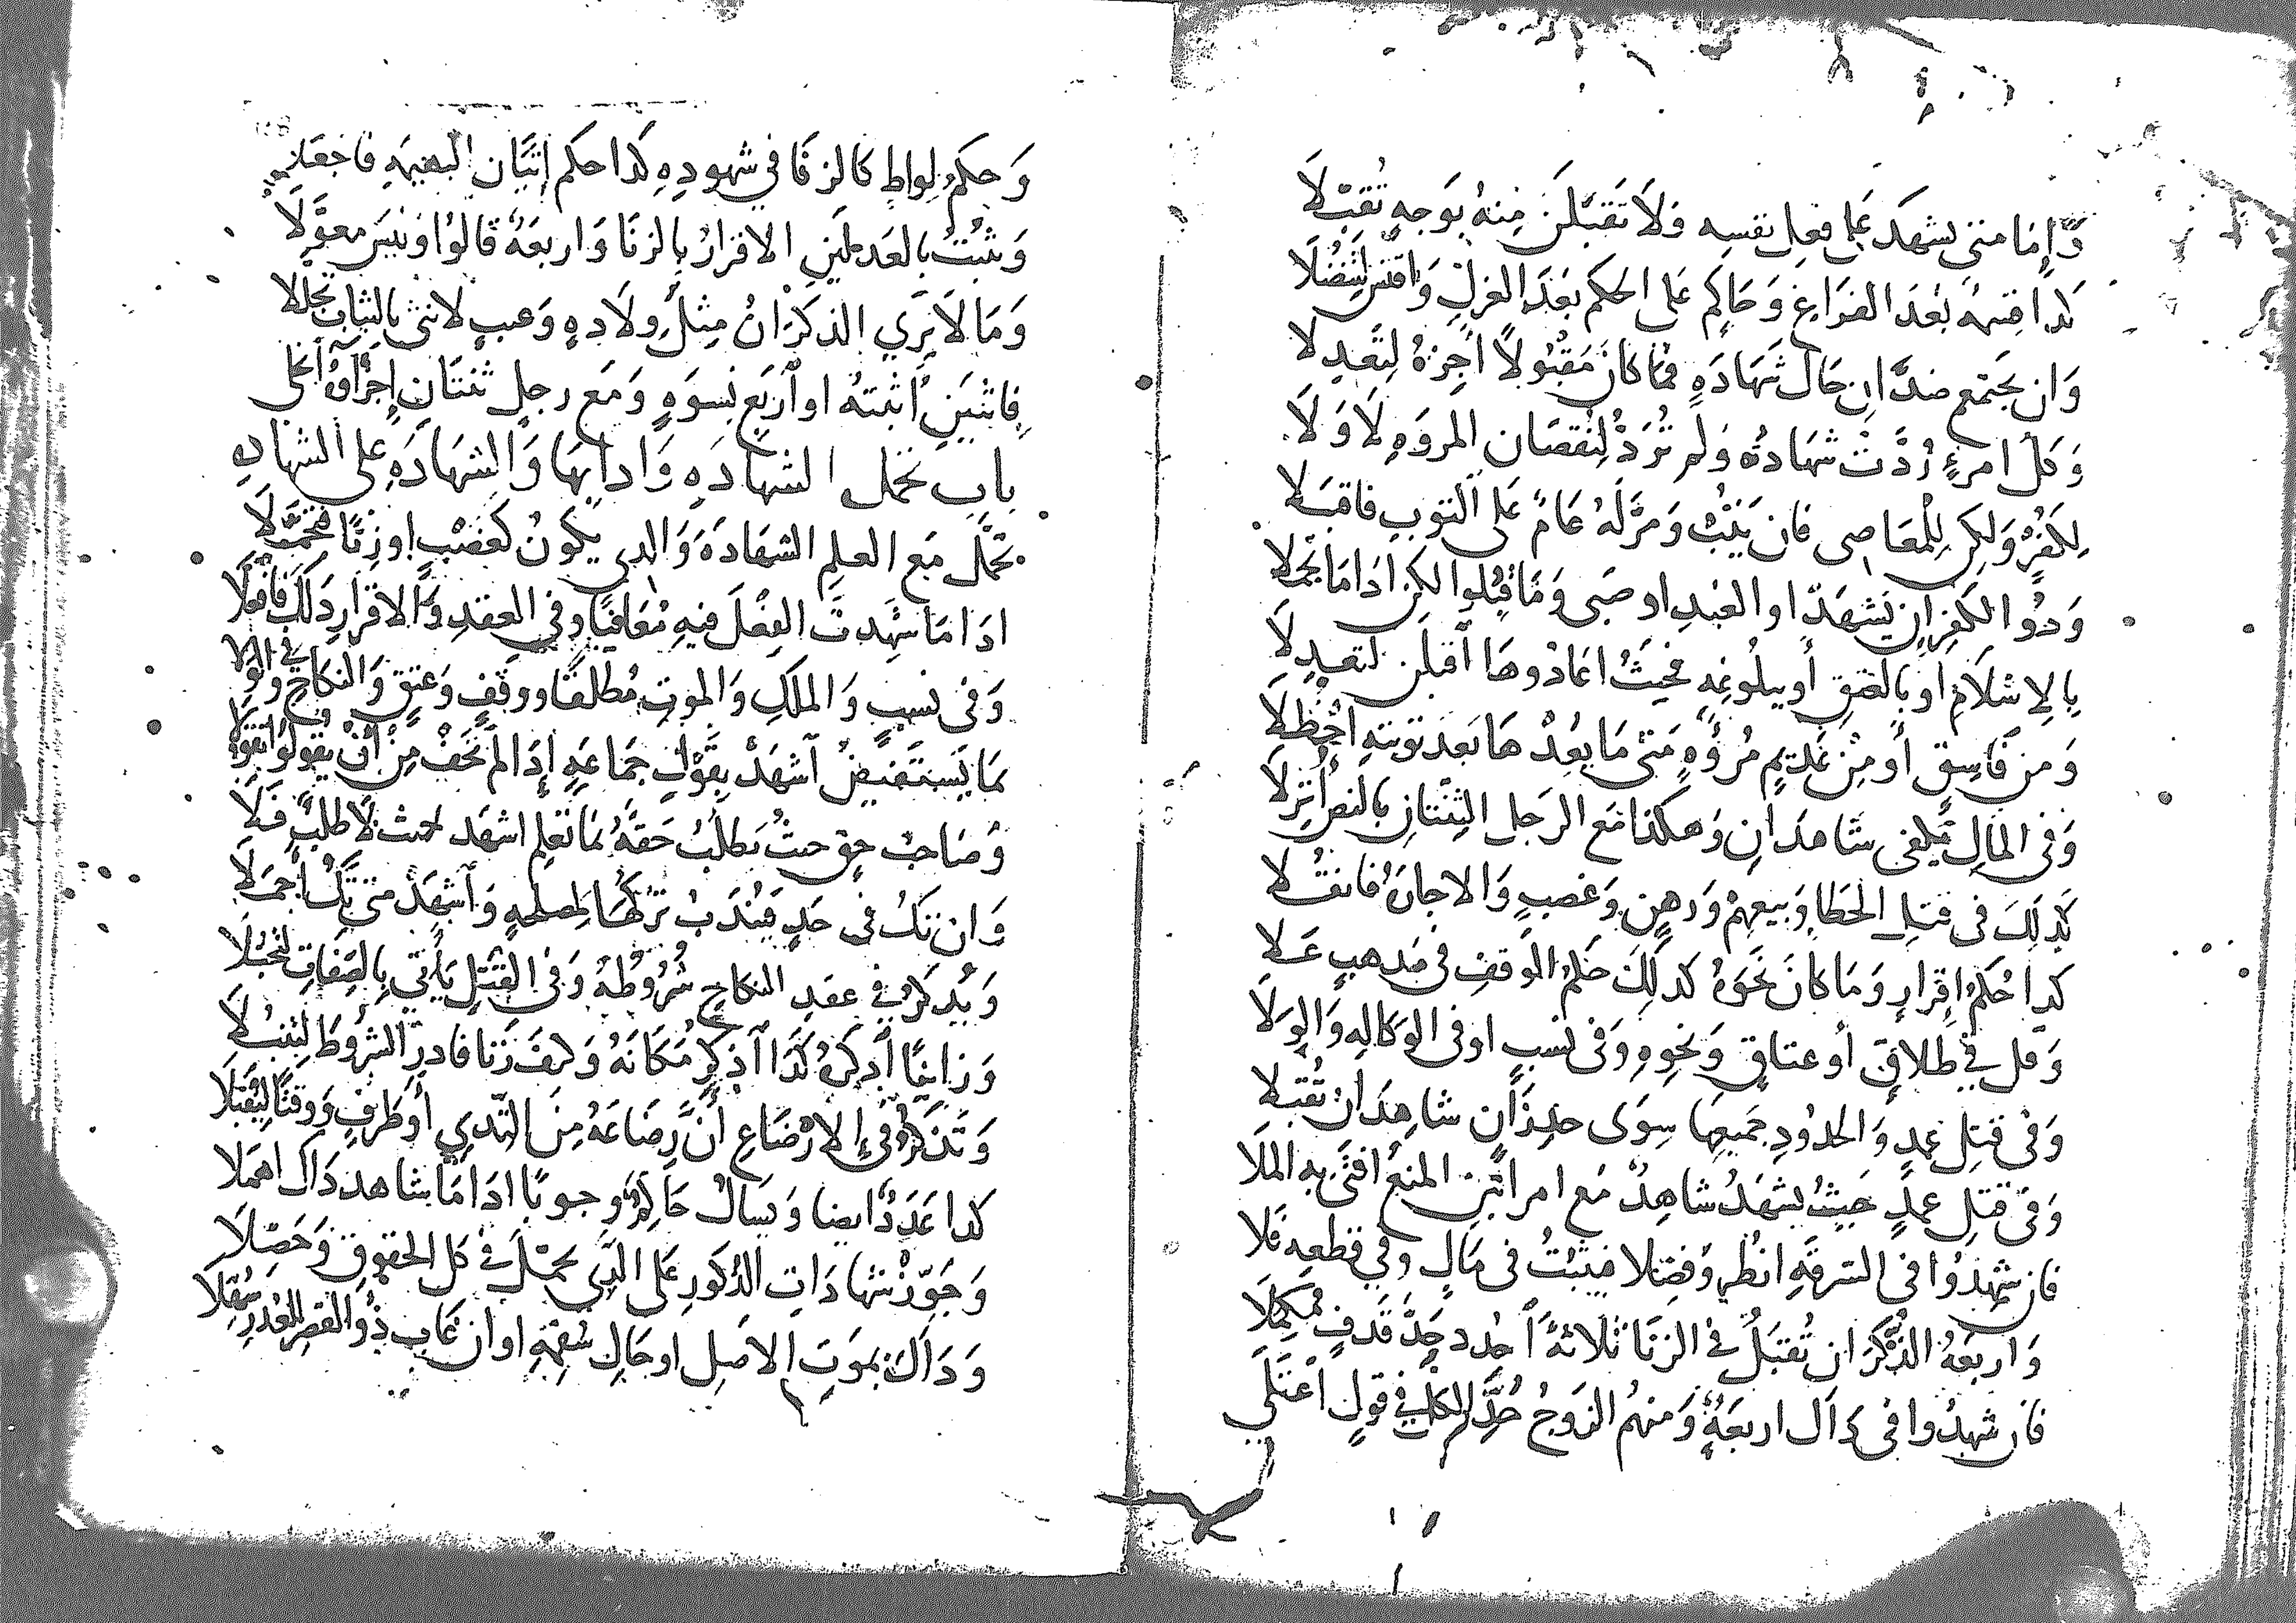 وَإِمَّا متى يشهد على فعل نفسه وَلَا تَقبَلَن مِنهُ بوَجهٍ تُقَبّلَا
كذا قسمة بَعْدَ الفَرَاغِ وَحَاكِم على الحكم بَعْدَ العزلِ وَاقتس لتفضُلا
وَان يجتمع ضدَّان حَال شَهَادَةٍ فما كانَ مَقبُولاً أجزهُ لِتَعدِلا
وَكل امرءٍ رُدَّتْ شهَادتُه وَلم تُرَدْ لِنُقصَان المروَةِ لَا وَلَا
لِكفْرٍ وَلكِن لِلْمَعَاصِى فان يَتُبْ وَمرَّ لَهُ عَامٌ على التوب فاقبَلا
وَذُوا الكفرِ ان يَشهَد او العَبْد اوصَبى وَمَا قُبِلوا لكن اذَا مَا تجملا
بِالِاسْلَامِ او بالعتقِ أو ببلُوغِهِ فحَيْثُ اعَادُوهَا اقبَلن لتعدِلَا
وَمن فَاسِقٍ أو مِنْ عَدِيمِ مُرُؤَةٍ مَتى مَا يعِدْهَا بَعدَ تَوبَتِهِ احْظلا
وَفى المَالِ يكفى شَاهدَانِ وَهكذا مَع الرَجل الثِنْتانِ بالنص أنزِلَا
كَذلِكَ فى قتلِ الخطا وَبَيعِهِمْ وَرهنٍ وَغصبٍ وَالاجارَةُ فانقُلا
كذا حُكمُ إقرارٍ وَمَا كانَ نَحوَهُ كذلِكَ حكمُ الوَقفِ فى مَذهبٍ عَلا
وَقل في طلاقٍ أو عتاقٍ وَنحوِهِ وَفى نسبٍ اوفى الوَكالهِ وَالوِلَا
وَفى قتلِ عمدٍ وَالحدُودِ جَميعِهَا سِوَى حدِ زَانٍ شاهِدَانْ تُقبَلا
وَفى قتلِ عمدٍ حَيثُ يشهَدُ شاهِدٌ مَع امراتين المنعُ افتى به الملَا
فان شهدُوا فى السّرقةِ انظُر وَفصّلا فيثبُتُ فى مَالٍ وَفي قطعِهِ فَلا
وَاربَعَة الذُّكرَان تُقبَلُ في الزنَا ثلاثةٌ احدُد حَدَّ قَذفٍ مُكمّلا
فان شهدُوا فى ذَاك اربعَةٌ وَمنهم الزوجُ حُدَّ الكل في قولٍ اعْتَلَى
وَحكمُ لِواطٍ كالزنا في شهودِهِ كذا حكم إتيَان البهيمَةِ فاجعَلا
وَيثبُتُ بالعَدلينِ الاقرارُ بالزنَا وَاربعَةٌ قالوُا وَليسَ معوَّلَا
وَمَا لَا يَرَي الذكرَانُ مِثلُ ولَادةٍ وَعيبٍ لانثى بالثيابِ تجللا
فاثنَينِ أثبتهُ او اَربَع نِسوَةٍ وَمَع رجلٍ ثنتَانِ إجزاؤهُ انجلى
باب تحمل الشهَادَهِ وَادايهَا وَالشهَادَهِ على الشهادهِ
تحمَّل مَع العلمِ الشهَادَةَ وَالذي يكونُ كغصْبٍ اوزِنًا فتحمّلَا
اذَا مَا شهِدتَ الفِعْلَ فيهِ مُعَاينًا وَفي العقدِ وَالاقرارِ ذلكَ فافعَلَا
وَفى نسبٍ وَالملكِ وَالموتِ مُطلقًا ووقفٍ وَعِتقٍ وَالنكاحِ وَفي الولا
بمَا يَستَفيضُ اشهَدْ بقوْلِ جَمَاعَةٍ إذَا لم تخَفْ مِنْ أنْ يقولُوا تقوُّلا
وَصَاحبُ حقٍ حيثُ يَطلُبُ حَقهُ بمَا تعلم اشهَد حيث لَا طلبٌ فَلَا
وَان تكُ فى حَدٍ فيُندَبُ تركُهَا لمصلحةٍ وَاشهَدْ متى تكُ اجمَلَا
وَيُذكرُ في عقدِ النكاحِ شُرُوطُهُ وَفى القَتلِ يَأتي بالصِفَاتِ لتُقبَلَا
وَزانيًا أذكرُهُ كَذَا اذكر مَكَانَهُ وَكيفَ زَنا فادرِ الشروُطَ لتنبُلَا
وَتَذكرُ فى الارْضَاعِ أنَّ رضَاعَهُ مِنَ الثَدي أوظرفٍ وَوَقتًا ليُقبَلَا
كذا عَدَدٌ ايضا وَيسألُ حَاكمٌ وجوبًا اذَا مَا شاهدٌ ذاكَ اهمَلا
وَجَوّزْ شهَادَاتِ الذكورِ على الذي تحمَّلَ في كل الحقوقِ وَحَصّلَا
وَذاكَ بمَوتِ الاصلِ اوحَالِ سُقمِهِ او ان غَابَ ذُو القصرِ للعُذرِ سُهّلَا